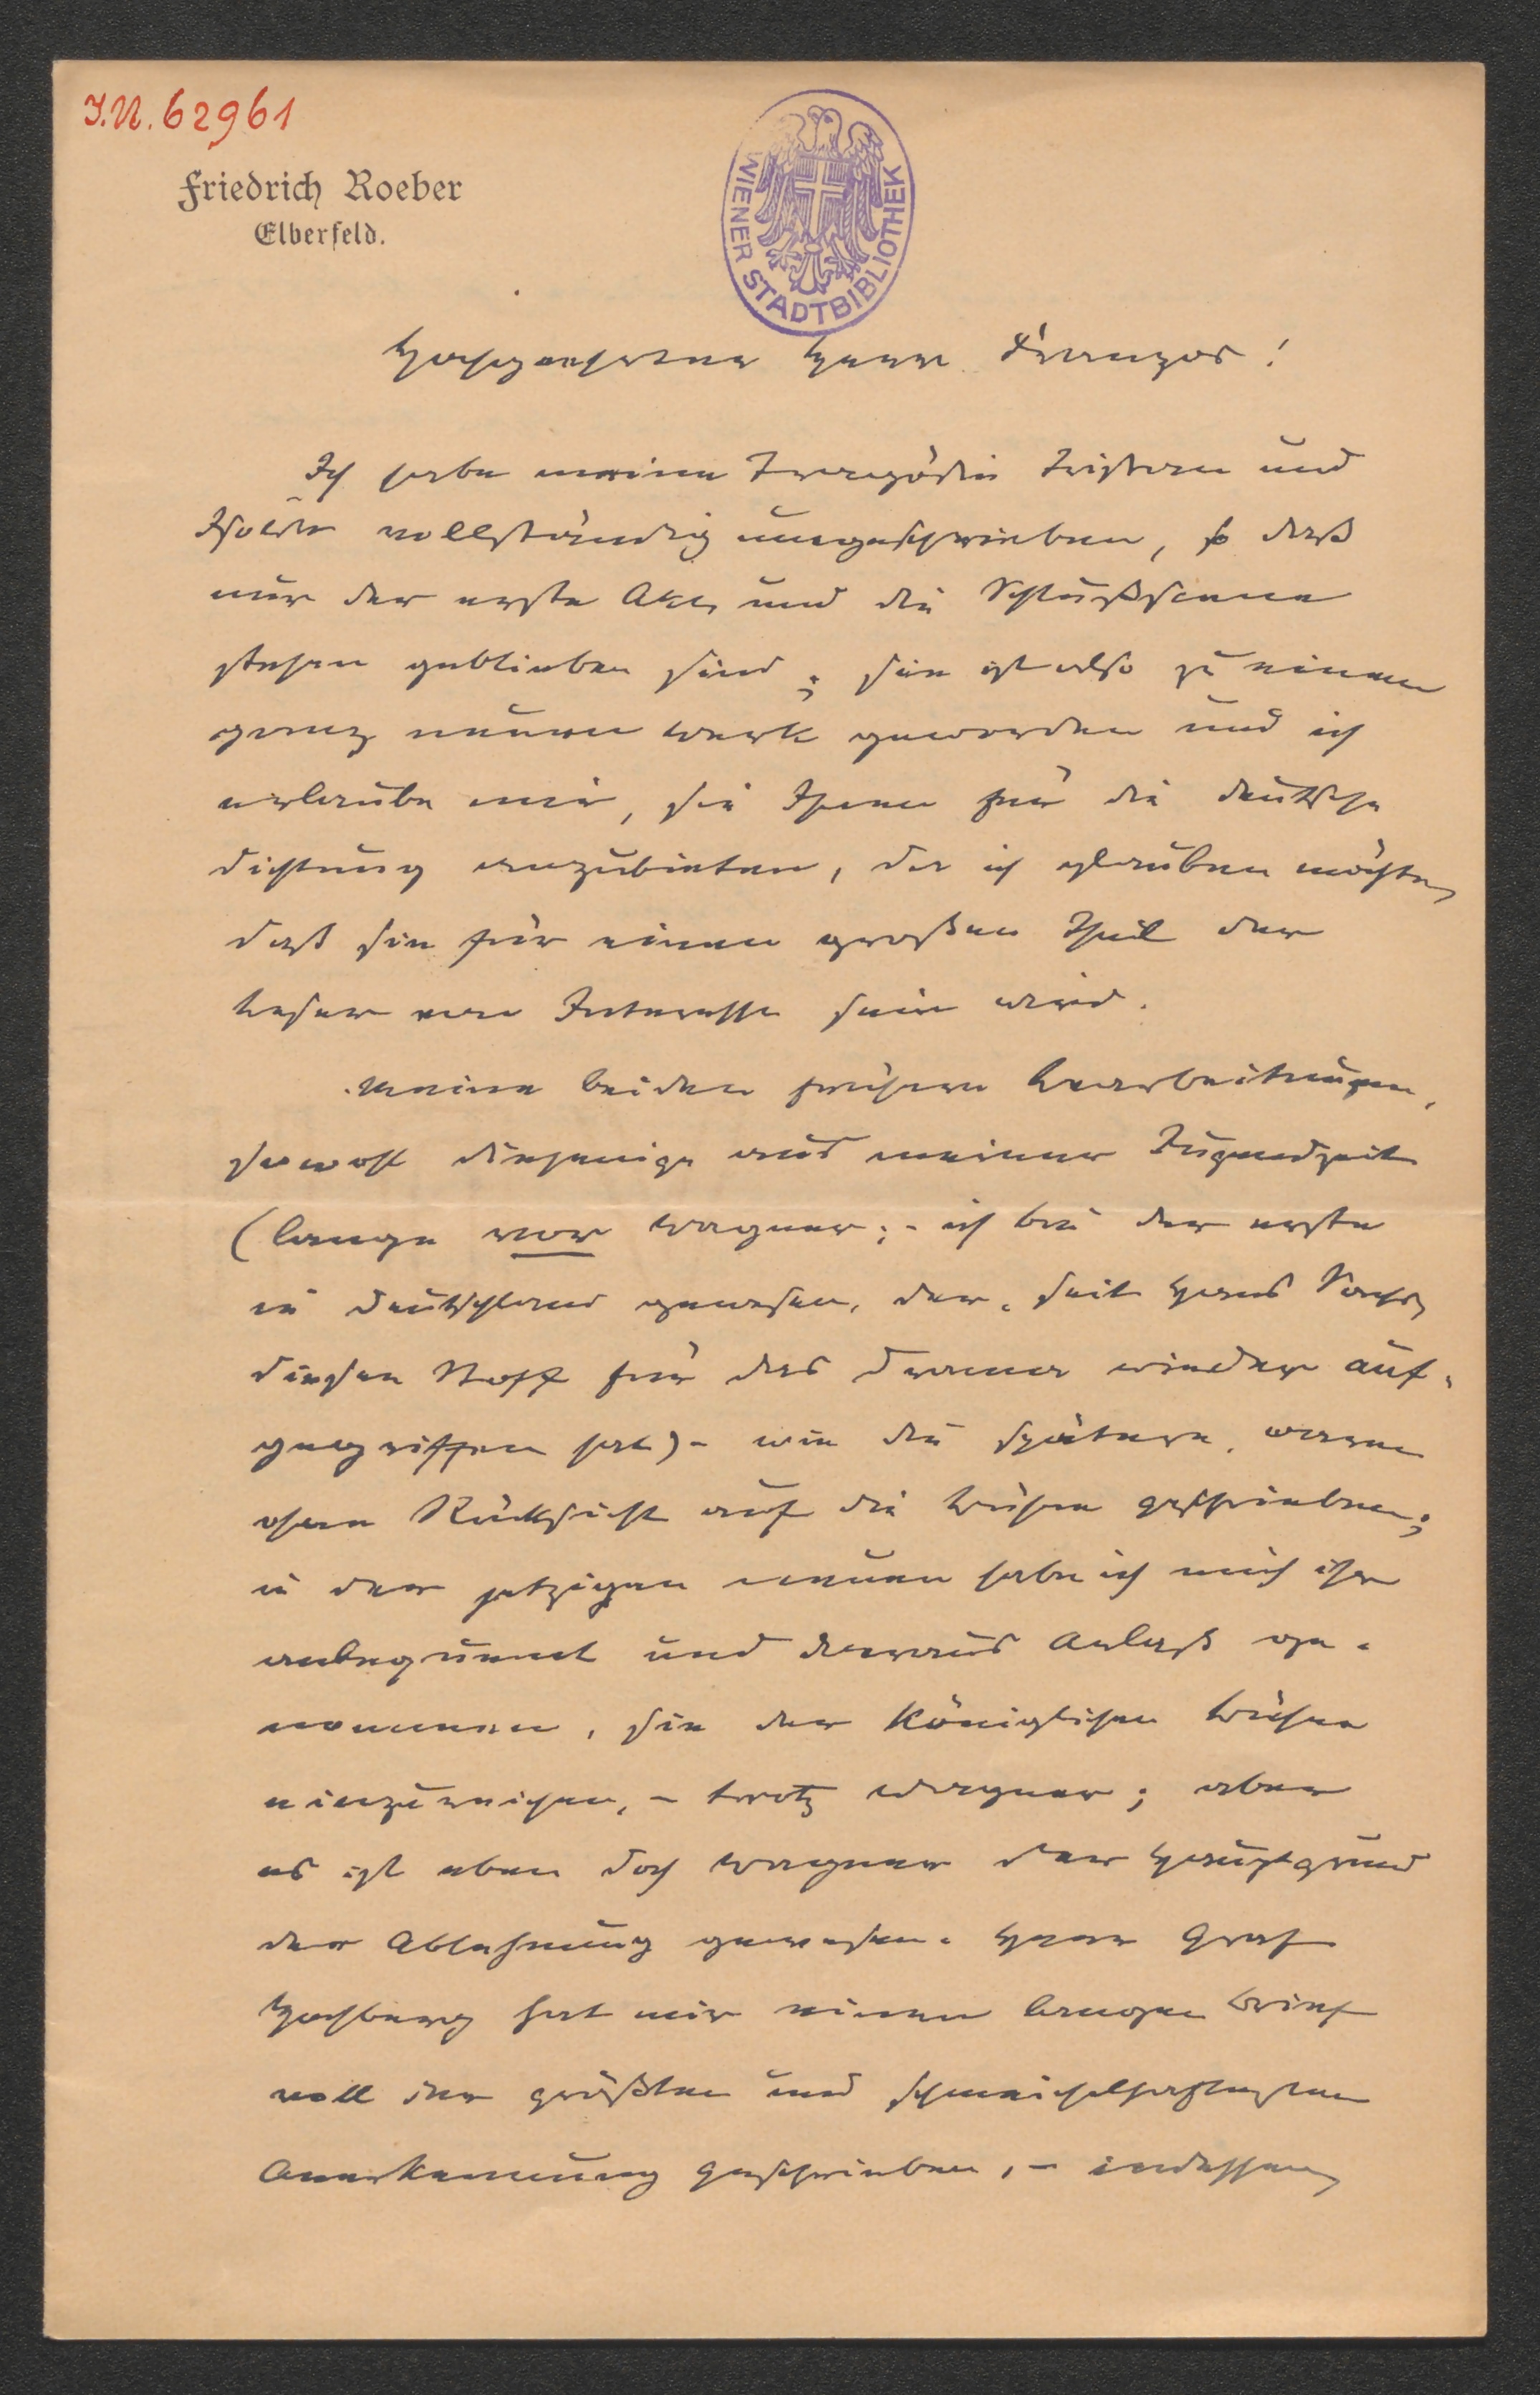 I.N. 62961
Friedrich Roeber
Elberfeld.
WIENER STADTBIBLIOTHEK
Hochgeehrter Herr Franzos!
Ich habe meine Tragödie Tristan und
Isolde vollständig umgeschrieben, so daß
nur der erste Akt und die Schlußscene
stehen geblieben sind; sie ist also zu einem
ganz neuen Werk geworden und ich
erlaube mir, sie Ihnen für die Deutsche
Dichtung anzubieten, da ich glauben möchte,
daß sie für einen großen Theil der
Leser von Interesse sein wird.
Meine beiden frühern Bearbeitungen,
sowohl diejenige aus meiner Jugendzeit
(lange vor Wagner; - ich bin der erste
in Deutschland gewesen, der, seit Hans Sachs,
diesen Stoff für das Drama wieder auf-
gegriffen hat) - wie die spätere, waren
ohne Rücksicht auf die Bühne geschrieben;
in der jetzigen neuen habe ich mich ihr
anbequemt und daraus Anlaß ge-
nommen, sie der Königlichen Bühne
einzureichen, - trotz Wagner; aber
es ist eben doch Wagner der Hauptgrund
der Ablehnung gewesen. Herr Graf
Hochberg hat mir einen langen Brief
voll der größten und schmeichelhaftesten
Anerkennung geschrieben, - indessen,